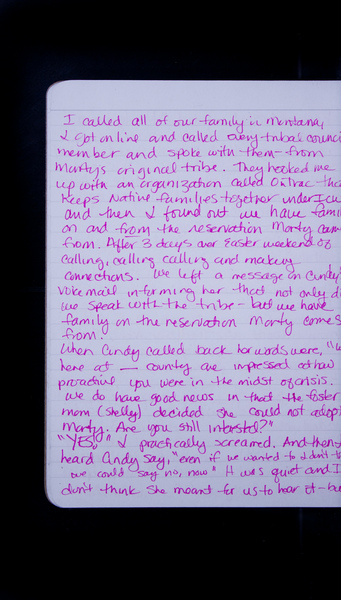 I called all of our family in Montana,
& got online and called every tribal counci
member and spoke with them - from
Martys original tribe. They hooked me
up with an organization called OnTrac tha
keeps Native families together under Icw
and then I found out we have fami
on and from the reservation Marty cam
from. After 3 days over Easter weekend of
calling, calling calling and making
connections. We left a message on Cindy'
voicemail informing her that not only di
we speak with the tribe - but we have
family on the reservation Marty comes
from.
When Cindy called back her words were, "W
here at — county are impressed at how
proactive you were in the midst of crisis.
We do have good news in that the foster
mom (Shelly) decided she could not adop
Marty. Are you still intersted?"
"YES," I practically screamed. And then
heard Cindy say, "even if we wanted to I don't th
we could say no, now" It was quiet and I
don't think she meant for us to hear it - bu